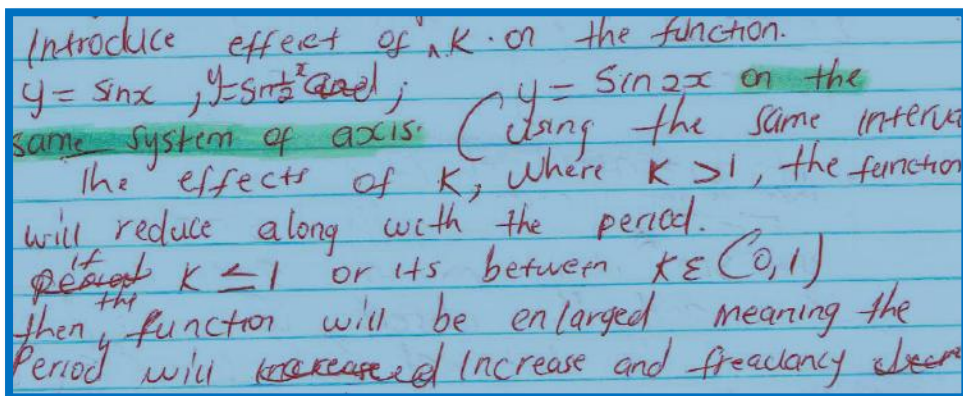 Introduce effect of ^ K. on the function.
y = sinx , y=sin x/2 and ; y = sin 2x on the
same system of axis. ( Using the same interva
The effects of K, where K >1, the function
will reduce along with the period.
if K ≤ 1 or its between K ε (0,1)
then, the function will be enlarged meaning the
Period will Increase and freaclancy